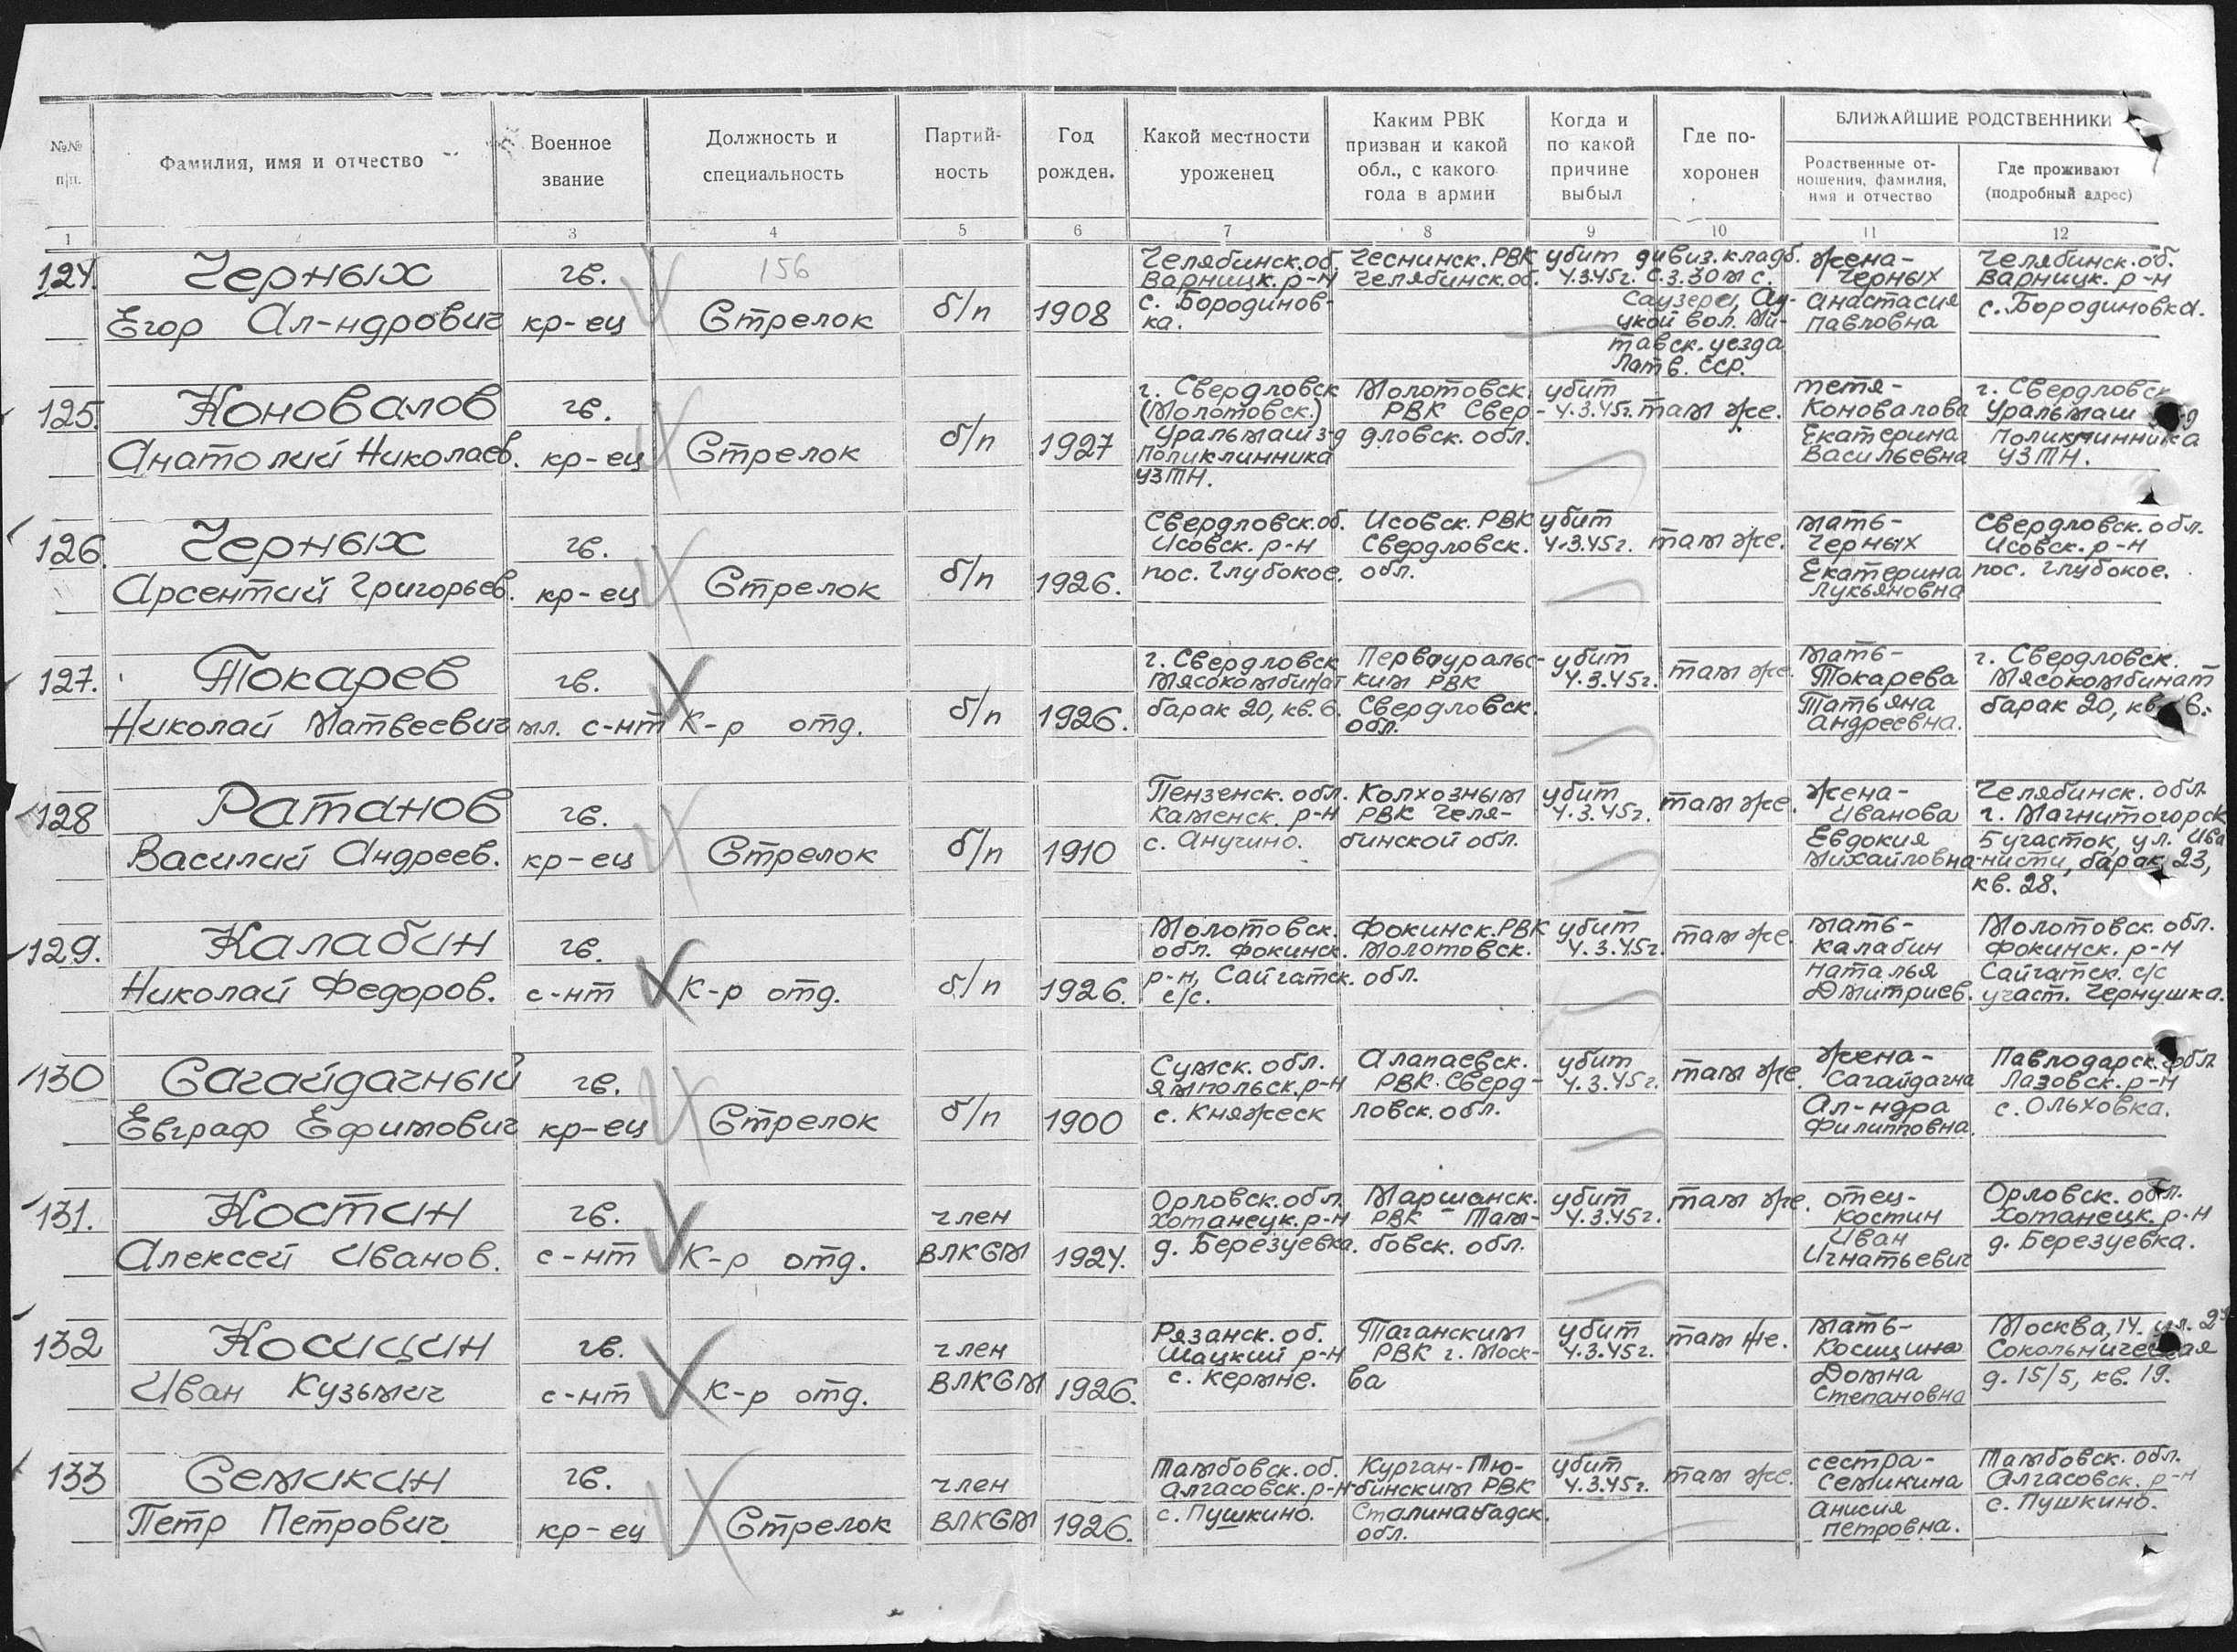 №№ п/п.
Фамилия, имя и отчество
Военное звание
Должность и специальность
Партий-ность
Год рожден.
Какой местности уроженец
Каким РВК призван и какой обл., с какого года в армии
Когда и по какой причине выбыл
Где по-хоронен
БЛИЖАЙШИЕ РОДСТВЕННИКИ
Родственные от-ношения, фамилия, имя и отчество
Где проживают (подробный адрес)
1 3 4 5 6 7 8 9 10 11 12
156
124. Черных гв. Челябинск.об. Чеснинск. РВК убит дивиз. кладб. жена- Челябинск.об.
Варницк. р-н Челябинск.об. 4.3.45г. С.З. 30 м с. Черных Варницк. р-н
Егор Ал-ндрович кр-ец Стрелок б/п 1908 с. Бородинов- Анастасия с. Бородиновка.
ка. цкой вол. Ми- Павловна
тавск. уезда
Латв. ССР.
125. Коновалов гв. г. Свердловск Молотовск. убит тетя- г. Свердловск
(Молотовск.) РВК Свер- 4.3.45г. там же. Коновалова Уралмаш
Анатолий Николаев. кр-ец Стрелок б/п 1927 Уральмаш з-д дловск. обл. Екатерина поликлинника
поликлинника Васильевна УЗТН.
УЗТН.
126. Черных гв. Свердловск.об. Исовск. РВК убит мать- Свердловск. обл.
Исовск. р-н Свердловск. 4.3.45г. там же. Черных Исовск. р-н
Арсентий Григорьев. кр-ец Стрелок б/п 1926. пос. Глубокое. обл. Екатерина пос. Глубокое.
Лукьяновна
127. Токарев гв. г. Свердловск Первоуральс- убит там же. мать- г. Свердловск.
Мясокомбинат ким РВК 4.3.45г. Токарева Мясокомбинат
Николай Матвеевич мл. с-нт К-р отд. б/п 1926. барак 20, кв. 6. Свердловск. Татьяна барак 20, кв. 6.
обл. Андреевна.
128 Ратанов гв. Пензенск. обл. Колхозным убит там же. жена- Челябинск. обл.
Каменск. р-н РВК Челя- 4.3.45г. Иванова г. Магнитогорск
Василий Андреев. кр-ец Стрелок б/п 1910 с. Анучино. бинской обл. Евдокия 5 участок, ул.
Михайловна барак 23,
кв. 28.
129. Калабин гв. Молотовск. Фокинск. РВК убит там же. мать- Молотовск. обл.
обл. Фокинск. Молотовск. 4.3.45г. Калабин Фокинск. р-н
Николай Федоров. с-нт К-р отд. б/п 1926. р-н, Сайгатск. обл. Наталья Сайгатск. с/с
с/с. Дмитриев. участ. Чернушка.
130 Сагайдачный гв. Сумск. обл. Алапаевск. убит там же. жена- Павлодарск. обл.
Ямпольск. р-н РВК Сверд- 4.3.45г. Сагайдачна Лазовск. р-н
Евграф Ефимович кр-ец Стрелок б/п 1900 с. Княжеск ловск. обл. Ал-ндра с. Ольховка.
Филипповна.
131. Костин гв. член Орловск. обл. Маршанск. убит там же. отец- Орловск. обл.
Хотанецк. р-н РВК Там- 4.3.45г. Костин Хотанецк. р-н
Алексей Иванов. с-нт К-р отд. ВЛКСМ 1924. д. Березуевка. бовск. обл. Иван д. Березуевка.
Игнатьевич
132 Косицин гв. член Рязанск. об. Таганским убит там же. мать- Москва, 14.
Шацкий р-н РВК г. Моск- 4.3.45г. Косицина Сокольническая
Иван Кузьмич с-нт К-р отд. ВЛКСМ 1926. с. Кермне. ва Домна д. 15/5, кв. 19.
Степановна
133 Семикин гв. член Тамбовск. об. Курган-Тю- убит там же. сестра- Тамбовск. обл.
Алгасовск. р-н бинским РВК 4.3.45г. Семикина Алгасовск. р-н
Петр Петрович кр-ец Стрелок ВЛКСМ 1926. с. Пушкино. Сталинабадск. Анисия с. Пушкино.
обл. Петровна.